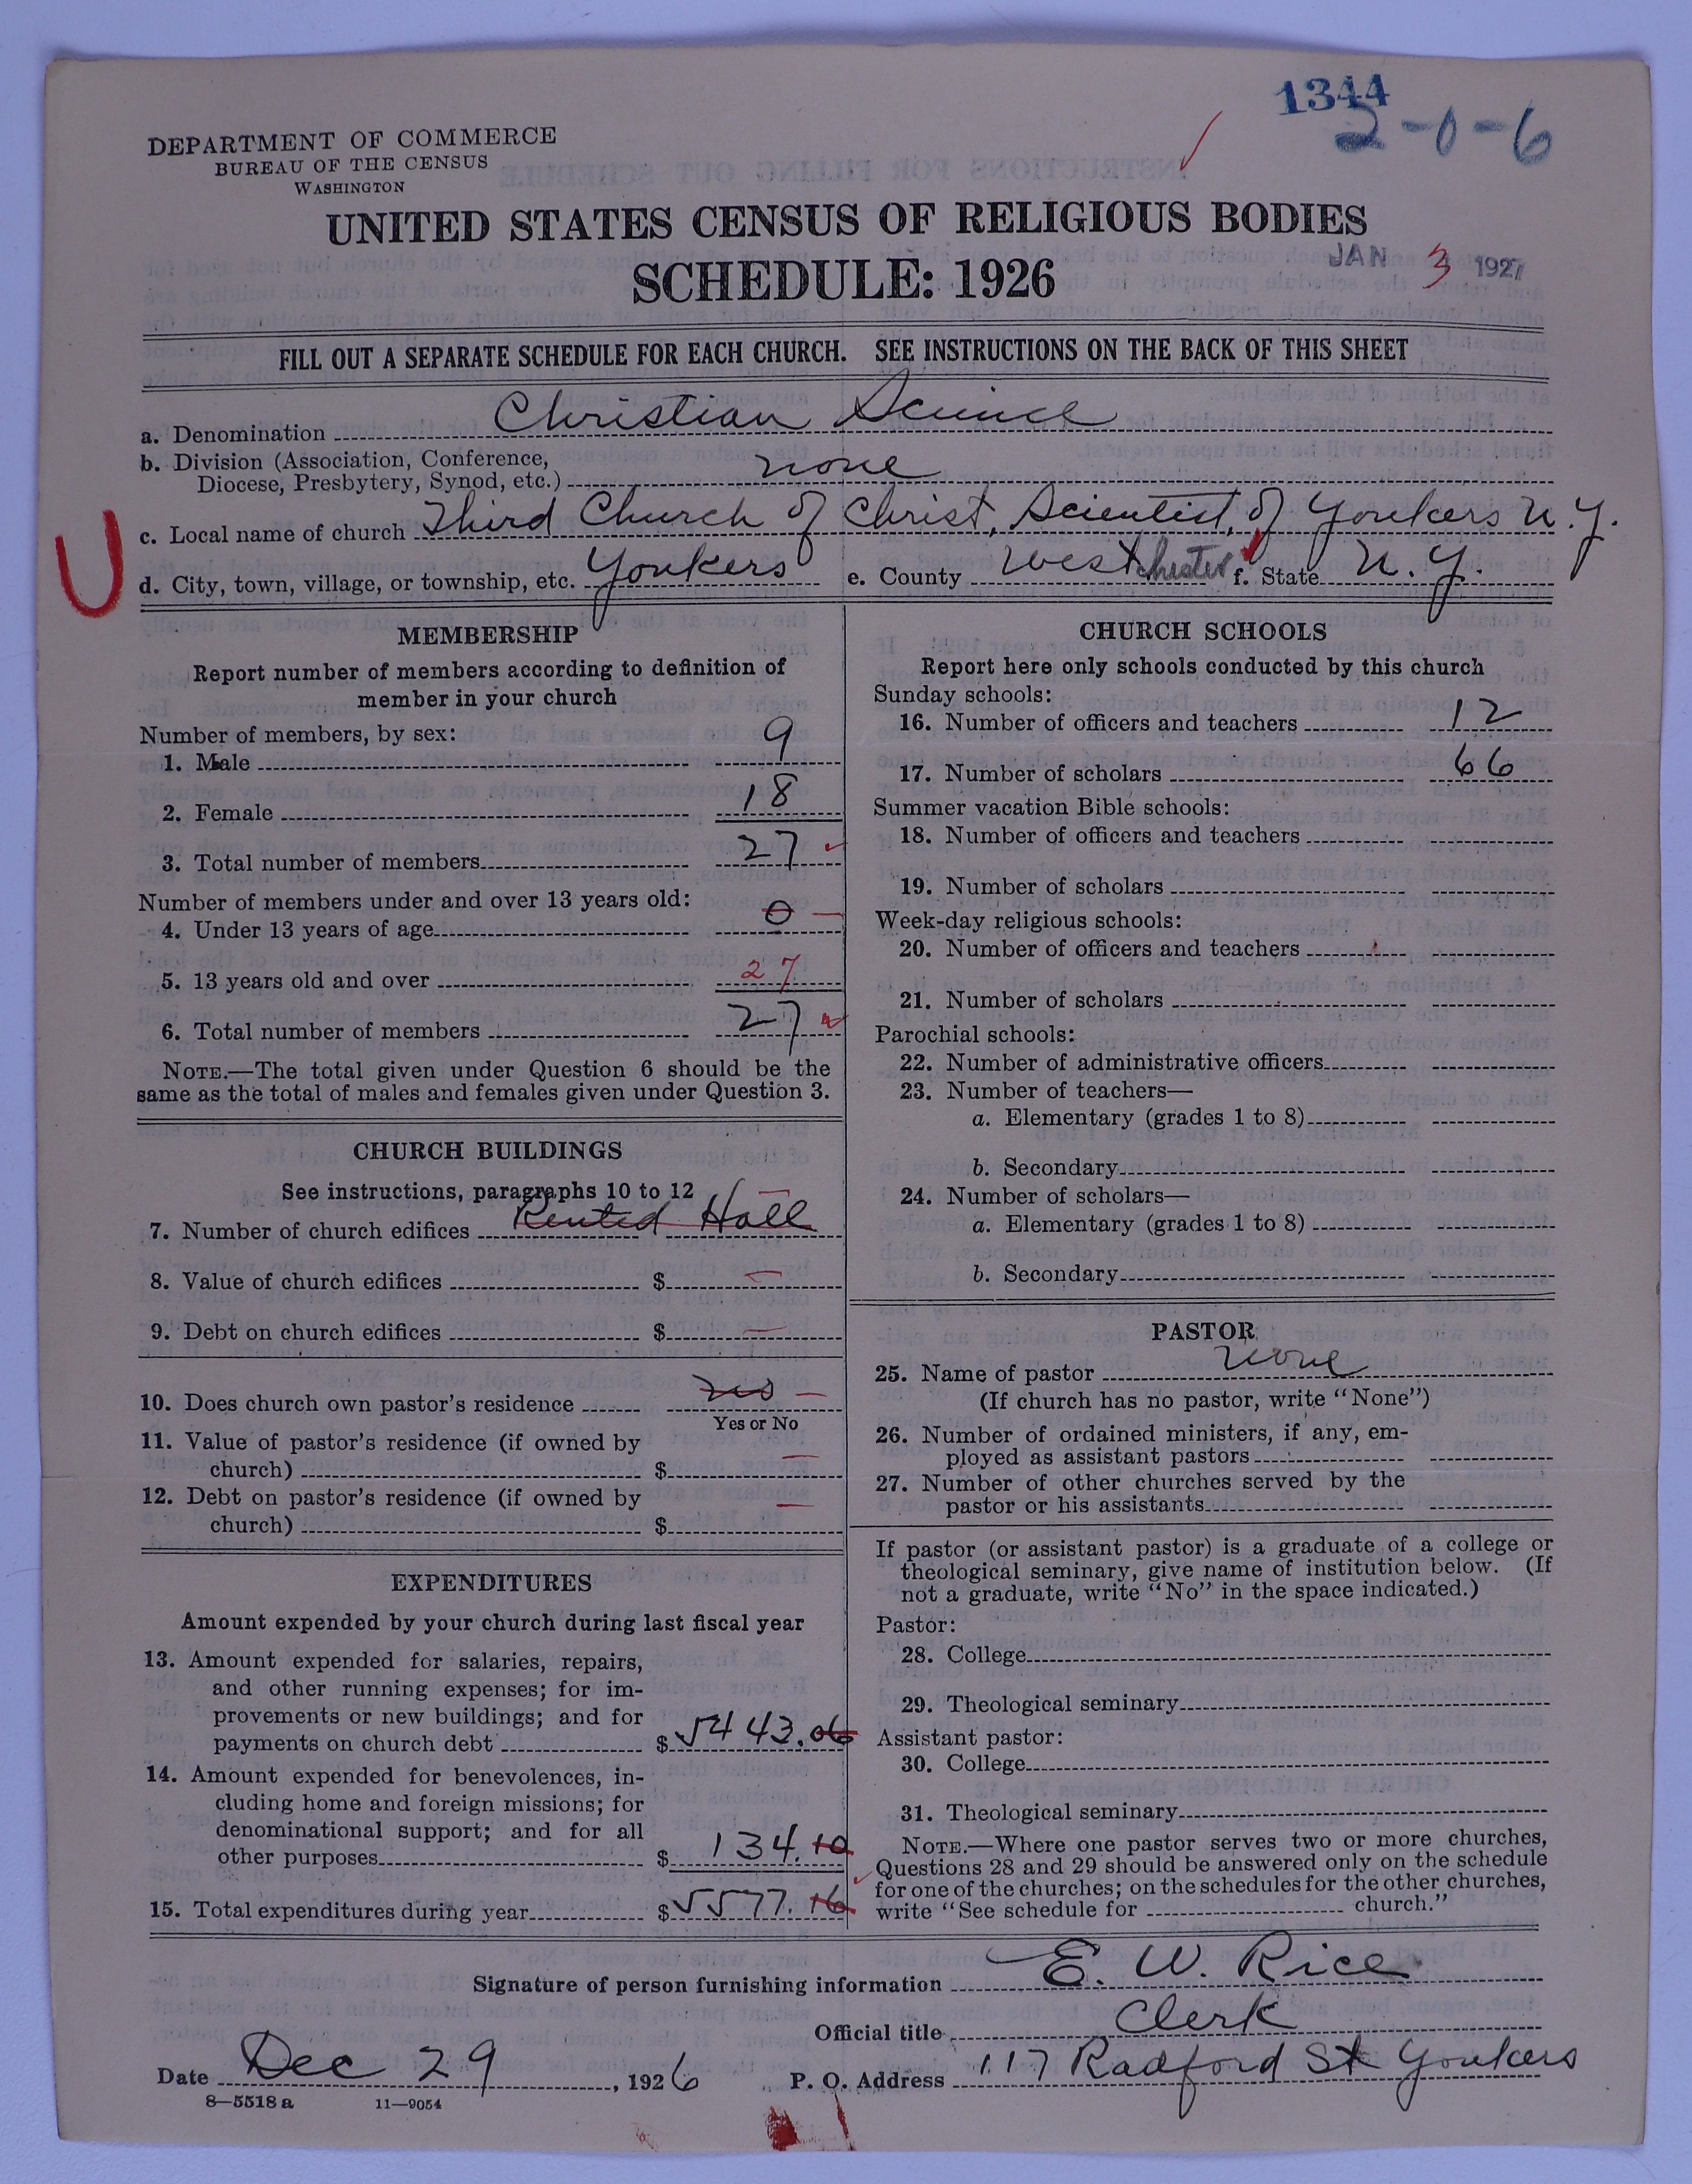 1344
2-0-6
DEPARTMENT OF COMMERCE
BUREAU OF THE CENSUS
WASHINGTON
UNITED STATES CENSUS OF RELIGIOUS BODIES
SCHEDULE: 1926
JAN 3 1927
FILL OUT A SEPARATE SCHEDULE FOR EACH CHURCH. SEE INSTRUCTIONS ON THE BACK OF THIS SHEET
a. Denomination Christian Science
b. Division (Association, Conference,
Diocese, Presbytery, Synod, etc.) none
U
c. Local name of church Third Church of Christ, Scientist, of Yonkers N.Y.
d. City, town, village, or township, etc. Yonkers e. County Westchester f. State N.Y.
MEMBERSHIP
Report number of members according to definition of
member in your church
Number of members, by sex:
1. Male 9
2. Female 18
3. Total number of members 27
Number of members under and over 13 years old:
4. Under 13 years of age 0 —
5. 13 years old and over 27
6. Total number of members 27
NOTE.—The total given under Question 6 should be the
same as the total of males and females given under Question 3.
CHURCH BUILDINGS
See instructions, paragraphs 10 to 12
7. Number of church edifices Rented Hall —
8. Value of church edifices $ —
9. Debt on church edifices $ —
10. Does church own pastor's residence no —
Yes or No
11. Value of pastor's residence (if owned by
church) $ —
12. Debt on pastor's residence (if owned by
church) $ —
EXPENDITURES
Amount expended by your church during last fiscal year
13. Amount expended for salaries, repairs,
and other running expenses; for im-
provements or new buildings; and for
payments on church debt $ 5443.06
14. Amount expended for benevolences, in-
cluding home and foreign missions; for
denominational support; and for all
other purposes $ 134.10
15. Total expenditures during year $ 5577.16
CHURCH SCHOOLS
Report here only schools conducted by this church
Sunday schools:
16. Number of officers and teachers 12
17. Number of scholars 66
Summer vacation Bible schools:
18. Number of officers and teachers
19. Number of scholars
Week-day religious schools:
20. Number of officers and teachers
21. Number of scholars
Parochial schools:
22. Number of administrative officers
23. Number of teachers—
a. Elementary (grades 1 to 8)
b. Secondary
24. Number of scholars—
a. Elementary (grades 1 to 8)
b. Secondary
PASTOR
25. Name of pastor none
(If church has no pastor, write "None")
26. Number of ordained ministers, if any, em-
ployed as assistant pastors
27. Number of other churches served by the
pastor or his assistants
If pastor (or assistant pastor) is a graduate of a college or
theological seminary, give name of institution below. (If
not a graduate, write "No" in the space indicated.)
Pastor:
28. College
29. Theological seminary
Assistant pastor:
30. College
31. Theological seminary
NOTE.—Where one pastor serves two or more churches,
Questions 28 and 29 should be answered only on the schedule
for one of the churches; on the schedules for the other churches,
write "See schedule for church."
Signature of person furnishing information E. W. Rice
Official title Clerk
Date Dec 29, 1926 P. O. Address 117 Radford St Yonkers
8—5518 a 11—9054